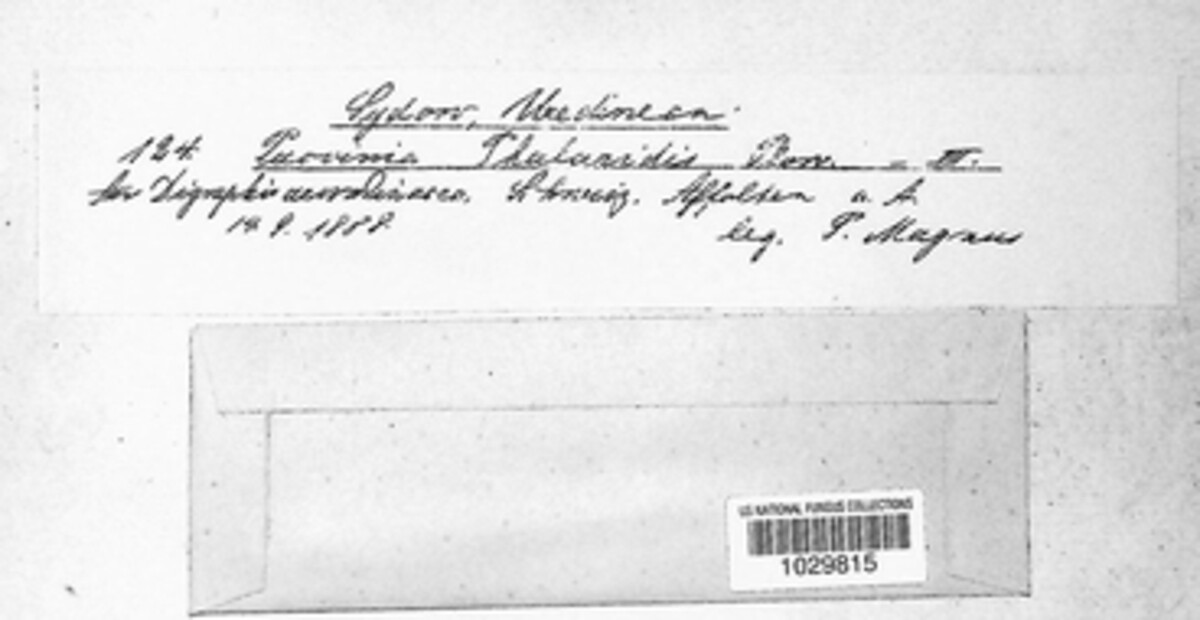 Sydow, Uredineen.
124. Puccinia Phalaridis Plow. – III.
Auf Digraphis arundinacea. Schweiz. Affoltern a. A.
19. 9. 1888. leg. P. Magnus
US NATIONAL FUNGUS COLLECTIONS
1029815